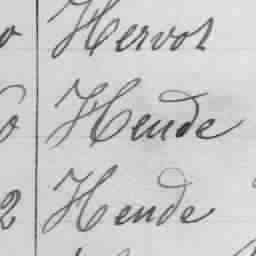 Hervot
Hende
2 Hende